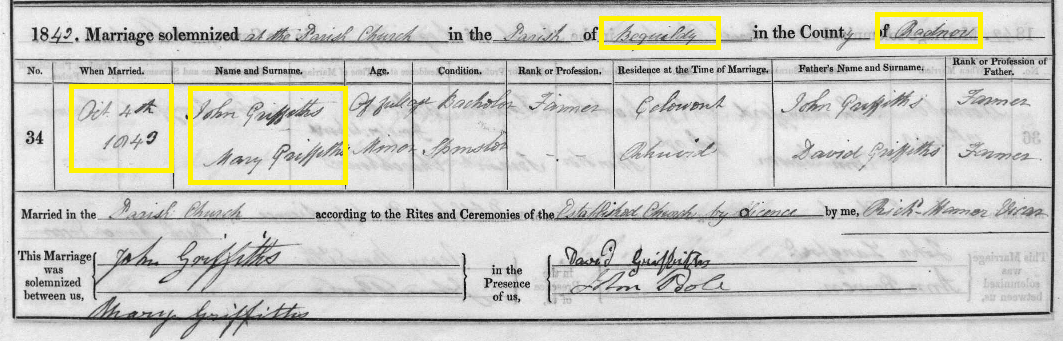 1843. Marriage solemnized at the Parish Church in the Parish of Beguildy in the County of Radnor
No. When Married. Name and Surname. Age. Condition. Rank or Profession. Residence at the Time of Marriage. Father's Name and Surname. Rank or Profession of Father.
34 Oct 4th 1843 John Griffiths Of full age Bachelor Farmer John Griffiths Farmer
Mary Griffiths Minor Spinster - David Griffiths Farmer
Married in the Parish Church according to the Rites and Ceremonies of the Established Church by Licence by me, Richd Hamer Vicar
This Marriage was solemnized between us, John Griffiths in the Presence of us, David Griffiths
Mary Griffiths John Poole